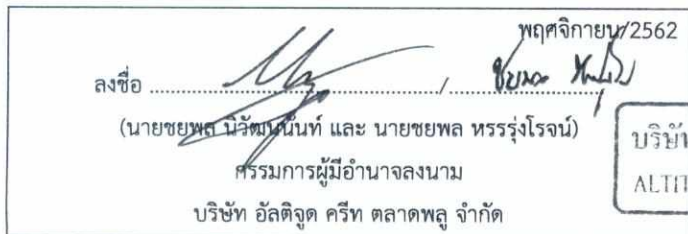 พฤศจิกายน/2562
ลงชื่อ ................................................/..............................
(นายชยพล นิวัฒนนันท์ และ นายชยพล หรรรุ่งโรจน์)
กรรมการผู้มีอำนาจลงนาม
บริษัท อัลติจูด ครีท ตลาดพลู จำกัด
บริษัท
ALTIT